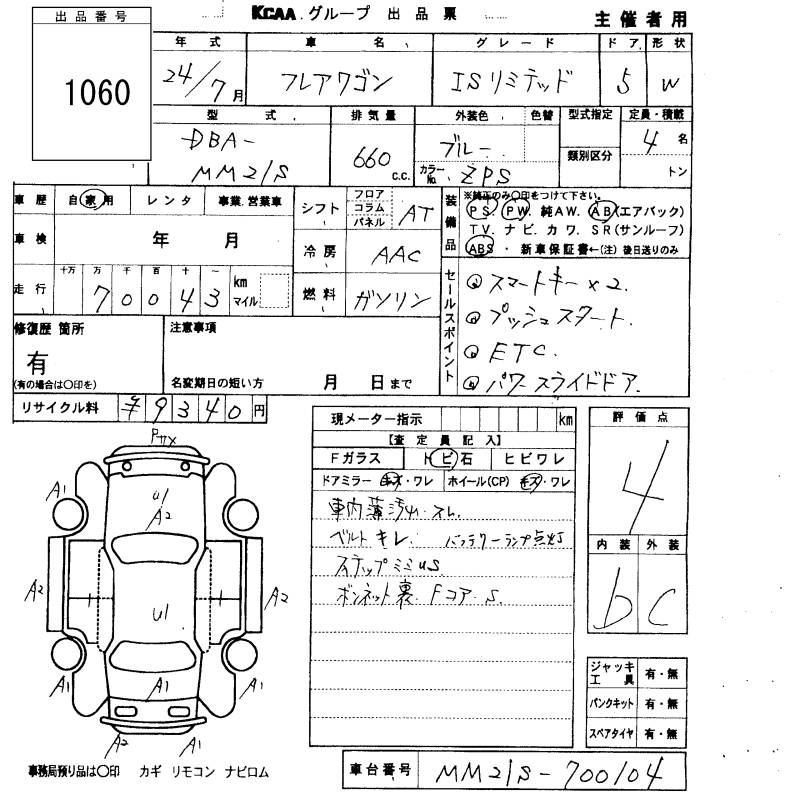 出品番号
1060
KCAA グループ 出品票
主催者用
年式 車名 グレード ドア 形状
24/7月 フレアワゴン ISリミテッド 5 W
型式 排気量 外装色 色替 型式指定 定員・積載
DBA-MM21S 660 c.c. ブルー カラーNo. ZPS 類別区分 4名 トン
車歴 自家用 レンタ 事業.営業車
車検 年 月
走行 十万 万 千 百 十 一 km マイル
70043
シフト フロア コラム パネル AT
冷房 AAC
燃料 ガソリン
装備品
※純正のみ〇印をつけて下さい。
PS. PW. 純AW. AB(エアバック)
TV. ナビ. カワ. SR(サンルーフ)
ABS・新車保証書←(注)後日送りのみ
セールスポイント
スマートキー×2.
プッシュスタート.
ETC.
パワースライドドア.
修復歴 箇所
有
(有の場合は〇印を)
注意事項
名変期日の短い方 月 日まで
リサイクル料 ¥9340円
現メーター指示 km
【査定員記入】
Fガラス トビ石 ヒビワレ
ドアミラー キズ・ワレ ホイール(CP) キズ・ワレ
車内薄汚れ.スレ.
ベルトキレ. バッテリーランプ点灯
ステップミミUS
ボンネット裏. Fコア.S.
評価点
4
内装 外装
b C
ジャッキ工具 有・無
パンクキット 有・無
スペアタイヤ 有・無
A1
U1
A2
A2
U1
A2
A1
A1
A1
A2
A1
事務局預り品は〇印 カギ リモコン ナビロム
車台番号 MM21S-700104